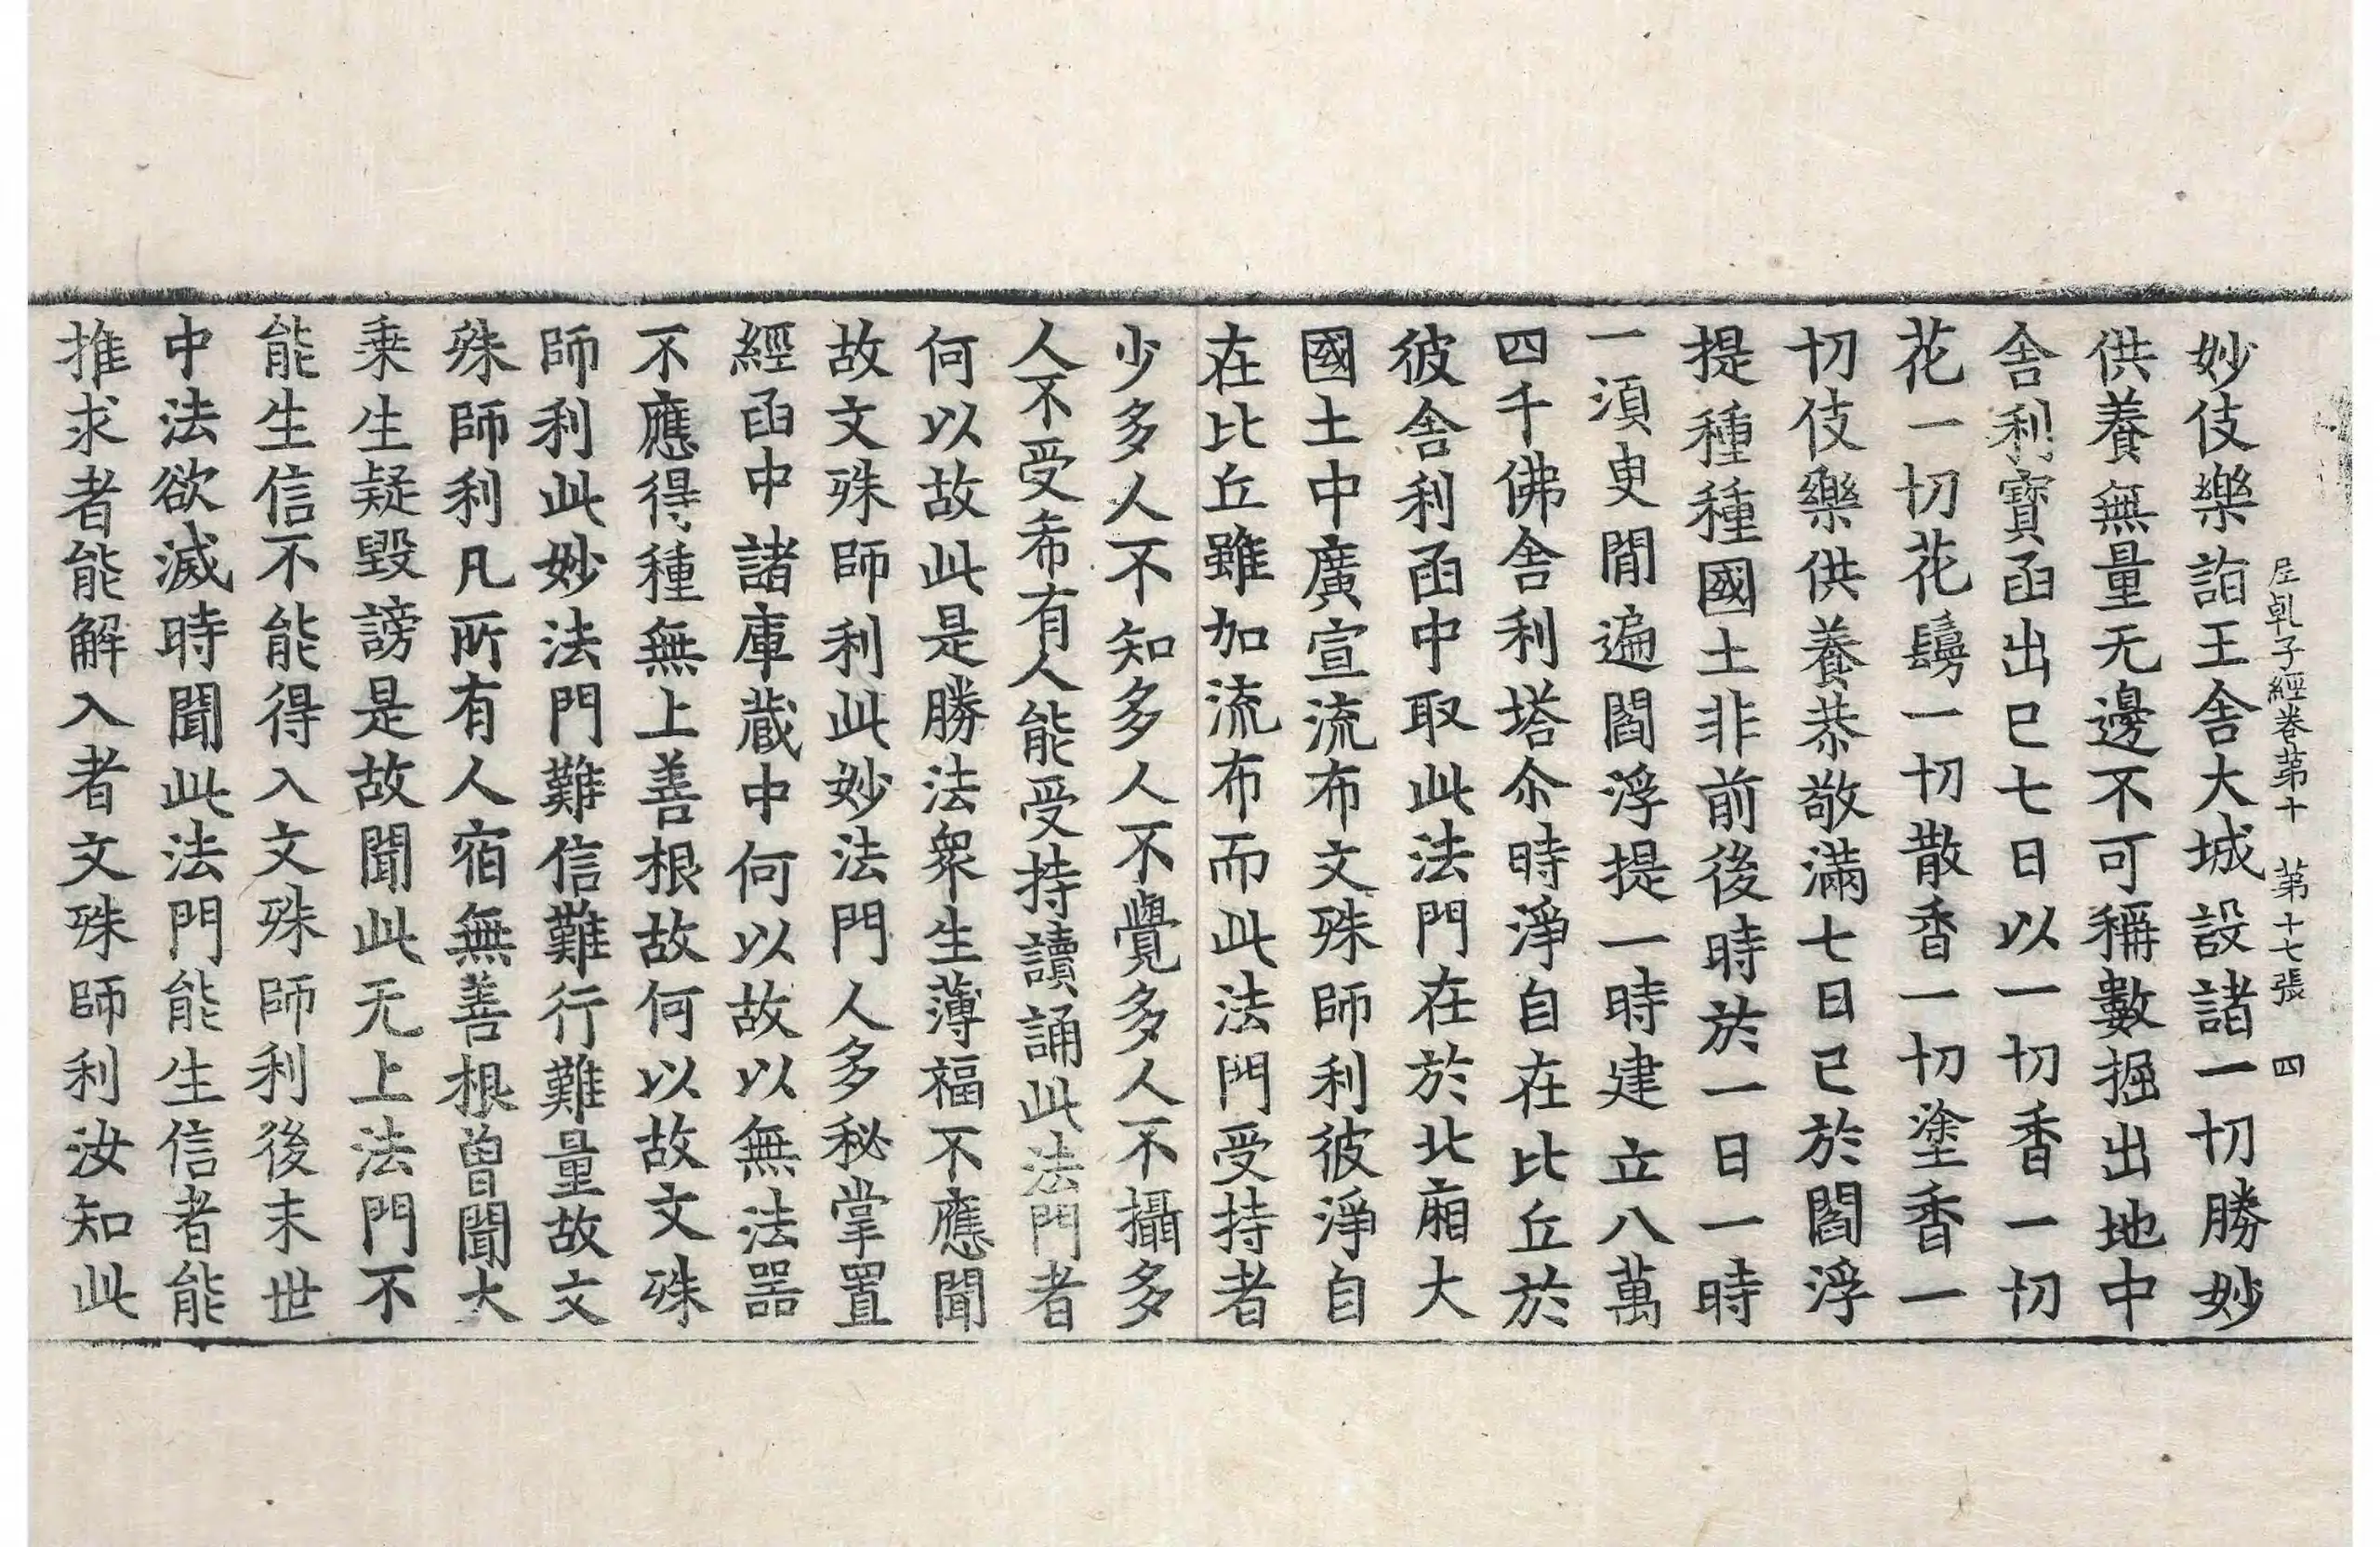 妙伎樂詣王舍大城設諸一切勝妙
供養無量无邊不可稱數掘出地中
舍利寶凾出已七日以一切香一切
花一切花鬘一切散香一切塗香一
切伎樂供養恭敬滿七日已於閻浮
提種種國土非前後時於一日一時
一湏㬰閒遍閻浮提一時建立八萬
四千佛舍利塔尒時淨自在比丘於
彼舍利凾中取此法門在於北廂大
國土中廣宣流布文殊師利彼淨自
在比丘雖加流布而此法門受持者
少多人不知多人不覺多人不攝多
人不受希有人能受持讀誦此法門者
何以故此是勝法衆生薄福不應聞
故文殊師利此妙法門人多秘掌置
經凾中諸庫藏中何以故以無法器
不應得種無上善根故何以故文殊
師利此妙法門難信難行難量故文
殊師利凡所有人宿無善根曾聞大
乗生疑毀謗是故聞此无上法門不
能生信不能得入文殊師利後末世
中法欲滅時聞此法門能生信者能
推求者能解入者文殊師利汝知此
尼乹子經卷苐十　苐十七張　四